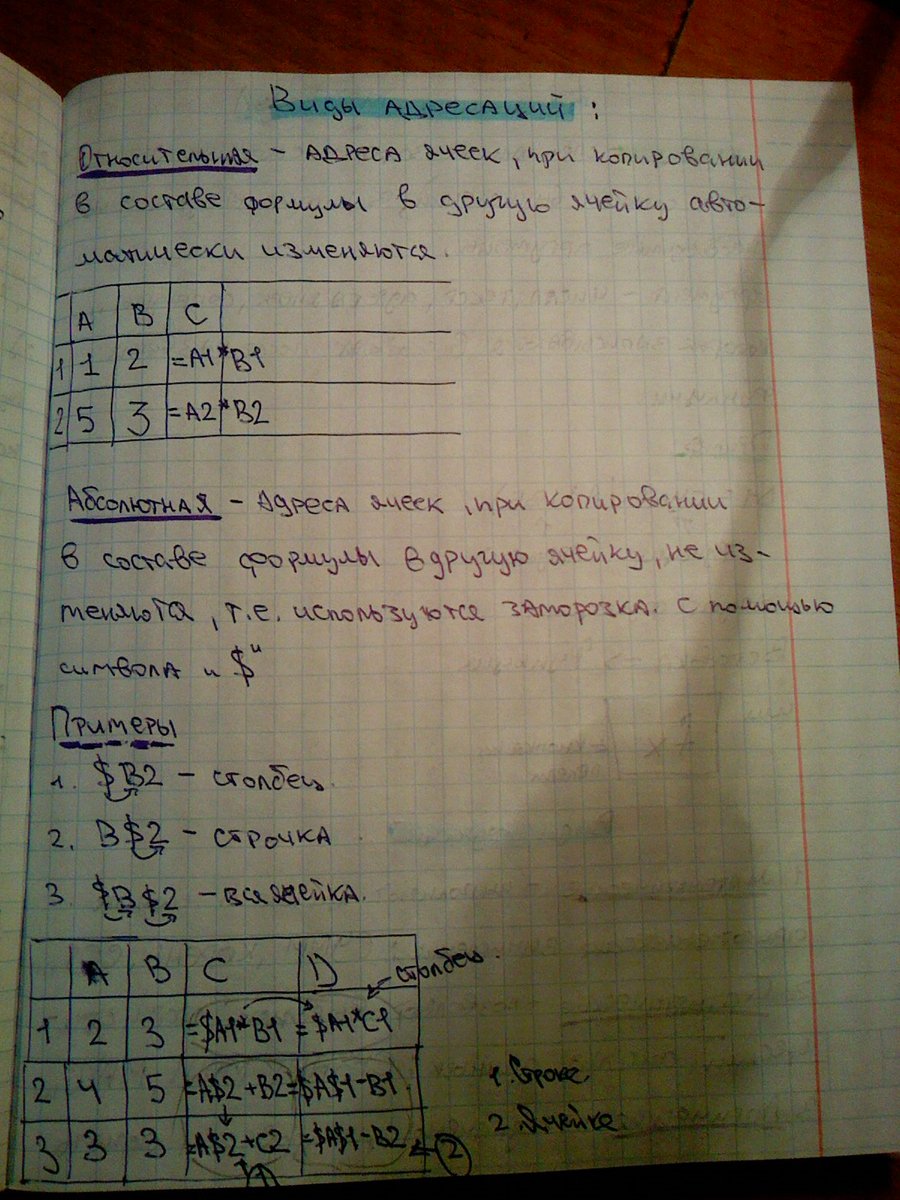 Виды адресаций:
Относительная – адреса ячеек, при копировании
в составе формулы в другую ячейку авто-
матически изменяются.
A B C
1 1 2 =A1*B1
2 5 3 =A2*B2
Абсолютная – Адреса ячеек, при копировании
в составе формулы в другую ячейку, не из-
меняются, т.е. используются заморозка. с помощью
символа „$"
Примеры
1. $B2 – столбец.
2. B$2 – строчка.
3. $B$2 – вся ячейка.
A B C D столбец.
1 2 3 =$A1*B1 =$A1*C1
2 4 5 =A$2+B2 =$A$1-B1
3 3 3 =A$2+C2 =$A$1-B2 2
1
1. Строка
2. Ячейка